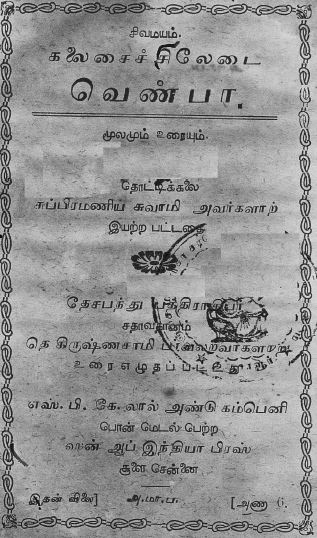 சிவமயம்.
கலைசைச்சிலேடை
வெண்பா.
மூலமும் உரையும்.
தொட்டிக்கலை
சுப்பிரமணிய சுவாமி அவர்களாற்
இயற்ற பட்டதை
தேசபந்து பத்திராதிபர்
சதாவதானம்
தெ கிருஷ்ணசாமி
உரை எழுதப்பட்டது
எஸ். பி. கே. லால் அண்டு கம்பெனி
பொன் மேடல் பெற்ற
ஸன் ஆப் இந்தியா பிரஸ்
சூளை சென்னை
இதன் விலை] அ.மா.ப. [அணா 6.